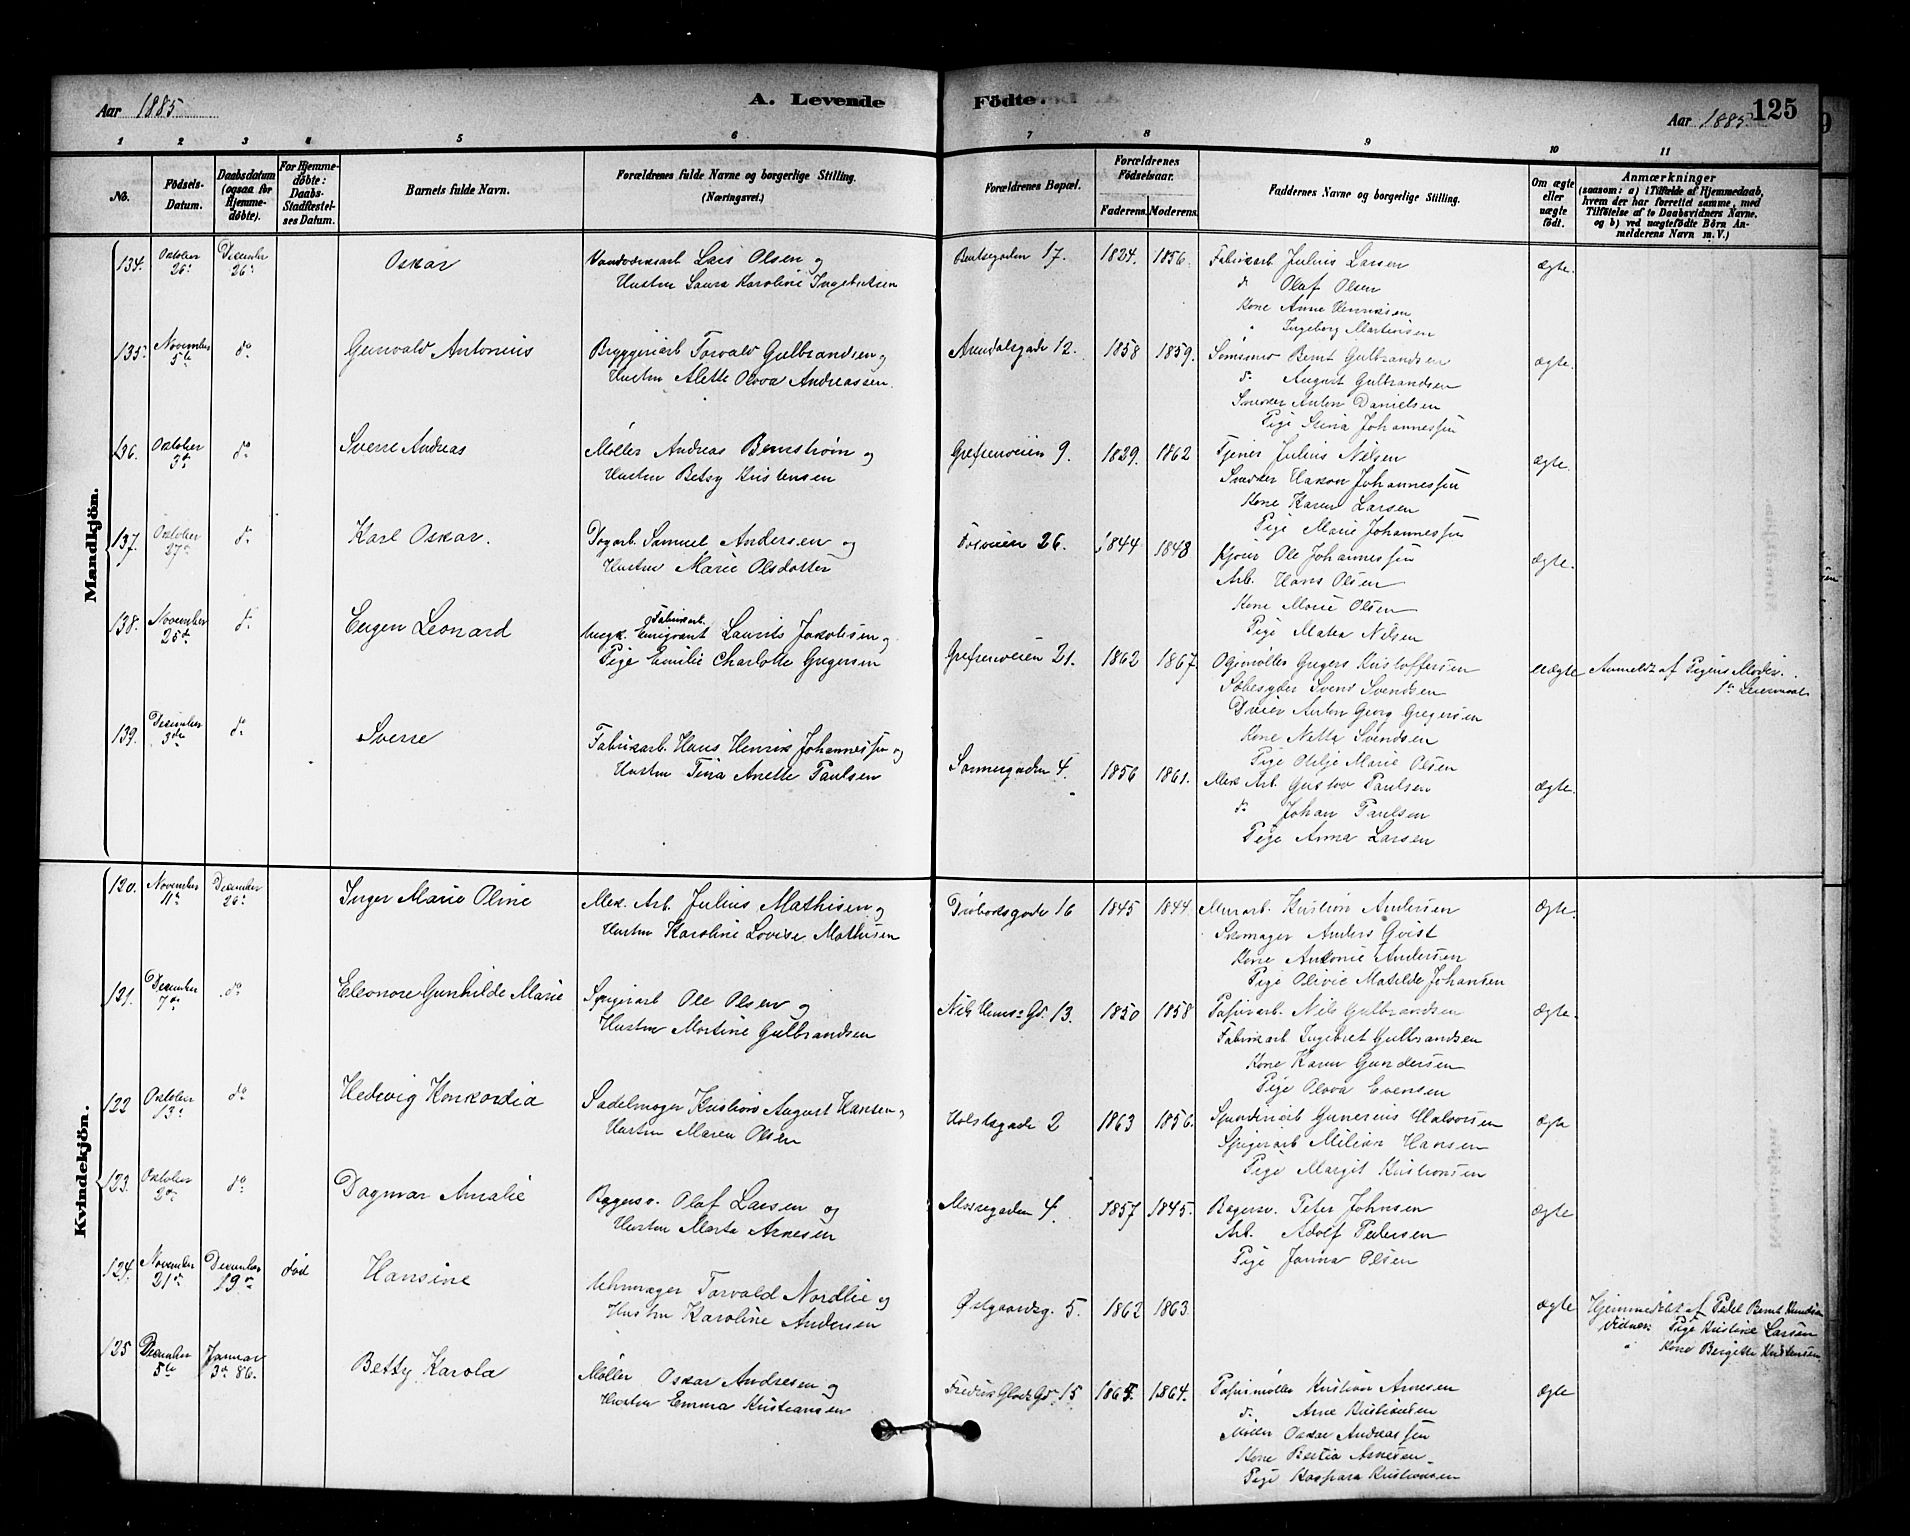 Aar 1885 A. Levende Födte. Aar 1885. 125
1 2 3 4 5 6 7 8 9 10 11
No. Födsels-Datum. Daabsdatum (ogsaa for Hjemme-døbte). For Hjemme-døbte: Daabs-Stadfæstel-ses Datum. Barnets fulde Navn. Forældrenes fulde Navne og borgerlige Stilling. (Næringsvei.) Forældrenes Bopæl. Forældrenes Födselsaar. Faderens. Moderens. Faddernes Navne og borgerlige Stilling. Om ægte eller uægte født. Anmærkninger (saasom: a) i Tilfælde af Hjemmedaab, hvem der har forrettet samme, med Tilföielse af to Daabsvidners Navne. og b) ved uægtefödte Börn An-melderens Navn m. V.)
Mandkjön.
134. Oktober 26de December 26de Oskar Lars Olsen og 17. 1824. 1856. Fabrikarb. Julius Larsen ægte.
Hustru Laura Karoline Ingebretsen do Olaf Olsen
Kone Anne Henriksen
" Ingeborg Martinsen
135. November 5te do Gunvald Antonius Bryggeriarb Torvald Gulbrandsen og Arendalsgade 12. 1858 1859. Bernt Gulbrandsen ægte.
Hustru Alette Olova Andreassen. do August Gulbrandsen
Snedker Anton Danielsen
Pige Stina Johannessen
136. Oktober 3de do Sverre Andreas Møller Andreas Bernstrøm og Grefsenveien 9. 1829. 1862 Tjener Julius Nilsen ægte.
Hustru Betsy Kristensen Snedker Hakon Johannessen
Kone Karen Larsen
Pige Marie Johannessen
137. Oktober 27de do Karl Oskar. Togarb. Samuel Andersen og 26. 1844 1848 Ole Johannessen ægte.
Hustru Marie Olsdatter Arb. Hans Olsen
Kone Marie Olsen
Pige Matea Nilsen
138. November 25de do Eugen Leonard Fabrikarb.
Ungk. Emigrant Laurits Jakobsen og Grefsenveien 21. 1862 1867 Gregers Kristoffersen uægte Anmeldt af Pigens Moder.
Pige Emilie Charlotte Gregersen Svend Svendsen 1ste Leiermaal
Dreier Anton Georg Gregersen
Kone Netta Svendsen
Pige Otilje Marie Olsen
139. December 3die do Sverre Fabrikarb. Hans Henrik Johannessen og Sannergaden 4. 1856 1861. Mek Arb. Gustav Paulsen ægte.
Hustru Tina Anette Paulsen do Johan Paulsen
Pige Anna Larsen
Kvindekjön.
120. November 11te December 26de Inger Marie Oline Mek. Arb. Julius Mathisen og Drøbaksgade 16 1845 1844. Murarb. Kristian Andersen ægte.
Hustru Karoline Lovise Mathisen Skomager Anders Qvist
Kone Antonie Andersen
Pige Olivie Matilde Johansen
121. December 7de do Eleonore Gunhilde Marie Spigerarb Ole Olsen og 13. 1850 1858 Papirarb. Nils Gulbrandsen ægte.
Hustru Martine Gulbrandsen Fabrikarb Ingebret Gulbrandsen
Kone Karen Gundersen
Pige Olova Evensen
122 Oktober 13de do Hedevig Konkordia Sadelmager Kristian August Hansen og Holstsgade 2 1863 1856. Gunerius Halvorsen ægte
Hustru Maren Olsen Spigerarb Milian Hansen
Pige Margit Kristiansen
123. Oktober do Dagmar Amalie Bagersv. Olaf Larsen og Mossegaden 4. 1857 1845. Bagersv. Peter Johnsen ægte
Hustru Marta Arnesen Arb. Adolf Pedersen
Pige Janna Olsen
124. November 21de December 19de død Hansine Uhrmager Torvald Nordlie og Østgaardsg. 5. 1862 1863. ægte Hjemmedøbt af Bernt Knudsen
Hustru Karoline Andersen Vidner: Pige Kristine Larsen
" Kone Bergette Kristensen
125 December 5te Januar 3de 86. Betty Karola Møller Oskar Andresen og Fredrik Glads Gd. 15 1865. 1864. Papirmøller Kristian Arnesen ægte
Hustru Emma Kristiansen do Arne Kristiansen
Møller Oskar Andreassen
Kone Bertia Arnesen
Pige Kaspara Kristiansen